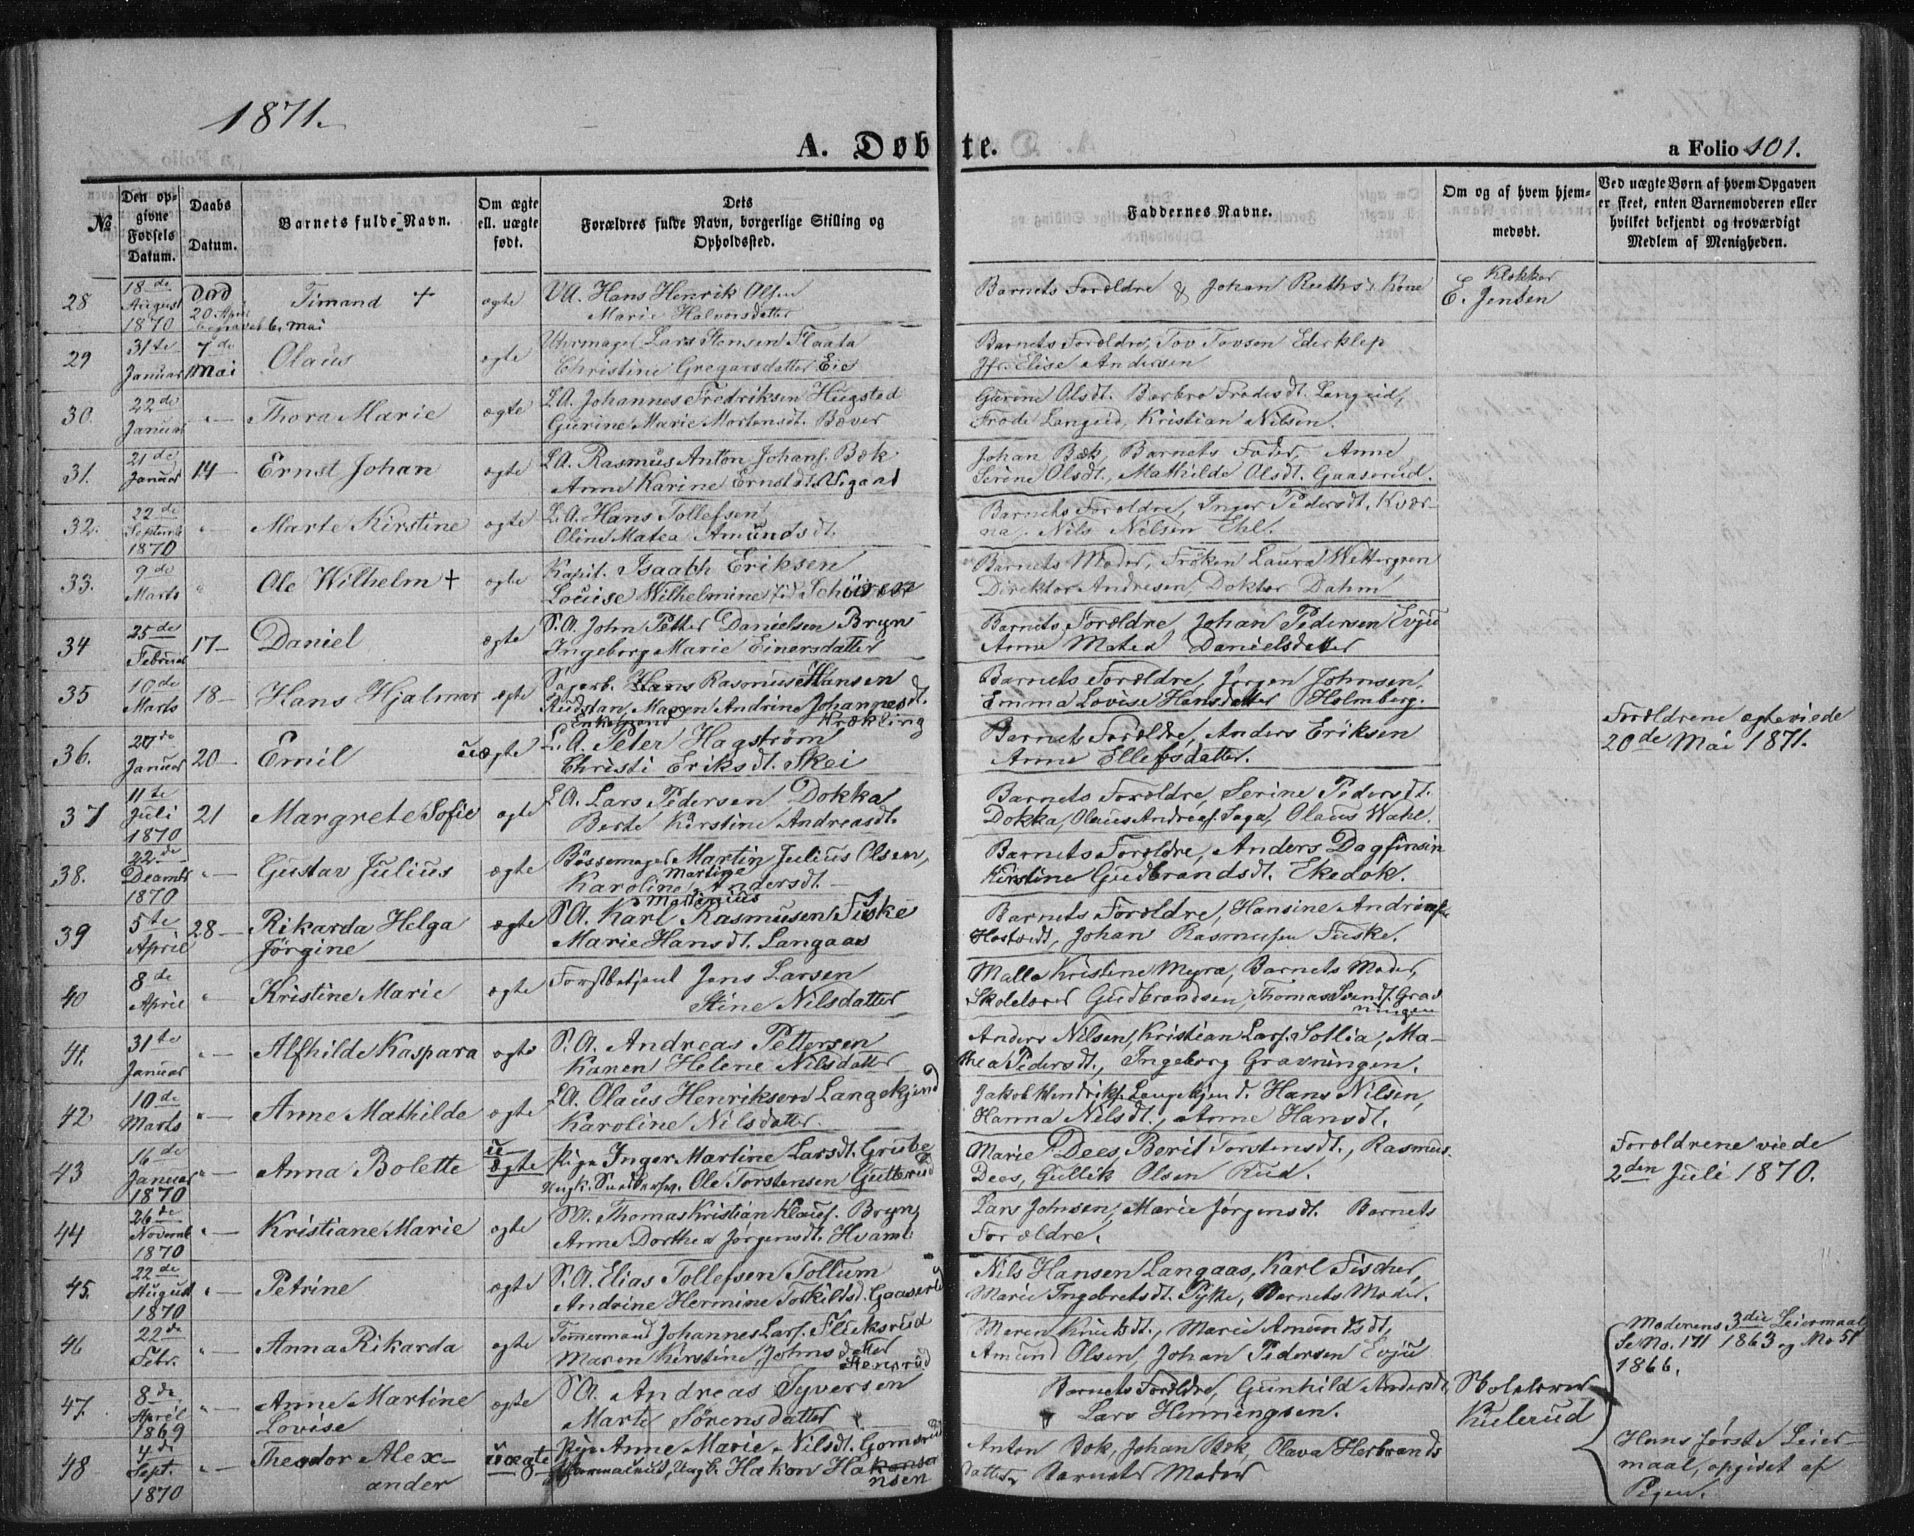 1871.
A. Døbte.
a Folio 101.
No
Den opgivne Fødsels Datum.
Daabs Datum.
Barnets fulde Navn.
Om ægte ell. uægte født.
Dets Forældres fulde Navn, borgerlige Stilling og Opholdssted.
Faddernes Navne.
Om og af hvem hjemmedøbt.
Ved uægte Børn af hvem Opgaven er skeet, enten Barnemoderen eller hvilket bekjendt og troværdigt Medlem af Menigheden.
28 18de August 1870 død 20 April begravet 6. mai Timand + ægte Hans Henrik Olsen
Marie Halvorsdatter
Barnets Forældre & Johan Kone
Klokker E. Jensen
29 31te Januar 7de Mai Olaus ægte Uhrmager Lars Flaata
Christine Gregarsdatter Eie
Barnets Forældre, Tov Tovsen
Jfr. Elise Andersen
30. 22de Januar "— Thora Marie ægte L.A. Johannes Fredriksen Hugsted
Gurine Marie Mortensdt. Bæver
Gurine Olsdt. Barbro Frodesdt. Langud,
Frode Langud, Kristian Nilsen.
31. 21de Januar 14— Ernst Johan ægte L.A. Rasmus Anton Johans. Bæk
Anne Karine Ernstdt. Nigaat
Johan Bæk, Barnets Fader, Anne
Serine Olsdt., Mathilde Olsdt. Gaaserud.
32. 22de Septemb 1870 " Marte Kirstine ægte L.A. Hans Tollefsen
Oline Matea Amundsdt.
Barnets Forældre, Inger Pedersdt. Kværna,
Nils Nilsen Ehl.
33. 9de Marts " Ole Wilhelm + ægte Kapit. Isaach Eriksen
Louise Wilhelmine
Barnets Moder, Frøken Laura Wettergren
Direktør Andresen, Doktor Dahm
34 25de Februar 17— Daniel ægte S.A. John Petter Danielsen Bryn
Ingeborg Marie Einersdatter
Barnets Forældre Johan Pedersen Evju
Anne Matea Danielsdatter
35 10de Marts 18— Hans Hjalmar ægte Hans Rasmus Hansen
Maren Andrine Johannesdt. Krækling
Barnets Forældre, Jørgen Johnsen,
Emma Lovise Hansdatter Holmberg.
36. 27de Januar 20— Emil uægte Enkemand L.A. Peter Hagstrøm
Christi Eriksdt. Skei
Barnets Forældre, Anders Eriksen
Anne Ellefsdatter.
Forældrene ægteviede
20de Mai 1871.
37 11te Juli 1870 21 Margrete Sofie ægte L.A. Lars Pedersen Dokka
Berte Kirstine Andreasdt.
Barnets Forældre, Serine Pedersdt.
Dokka, Olaus Andreas. Saga, Olaus Wahl.
38. 22de Decmbr 1870 "— Gustav Julius ægte Bøssemager Martin Julius Olsen,
Karoline Martine Andersdt.
Barnets Forældre, Anders Dagfinsin
Kirstine Gudbrandsdt. Ekedok.
39 5te April 28— Rikarda Helga
Jørgine ægte S.A. Karl Mathinius Rasmusen Fiske
Marie Hansdt. Langaas
Barnets Forældre, Hansine
Johan Rasmusen Fuske.
40 8de April "— Kristine Marie ægte Forstbetjent Jens Larsen
Stine Nilsdatter
Malla Kristine Myra, Barnets Moder,
Skolelærer Gudbrandsen, Thomas Gravningen
41. 31te Januar "— Alfhilde Kaspara ægte S.A. Andreas Pettersen
Karen Helene Nilsdatter
Anders Nilsen, Kristian Lars. Sollia, Mathea
Pedersdt., Ingeborg Gravningen.
42 10de Marts "— Anne Mathilde ægte L.A. Olaus Henriksen Langekjend
Karoline Nilsdatter
Jakob Hendriks. Langekjend, Hans Nilsen,
Hanna Nilsdt., Anne Hansdt.
43 16de Januar 1870 "— Anna Bolette uægte Pige Inger Martine Larsdt. Grube
Ungk. Ole Torstensen Gutterud
Marie Dees, Berit Torstensdt., Rasmus
Dees, Gullik Olsen Rud.
Forældrene viede
2den Juli 1870.
44 26de Novemb 1870 "— Kristiane Marie ægte S.A. Thomas Kristian Klaus. Bryn,
Anne Dorthea Jørgensdt. Hvamb
Lars Johnsen, Marie Jørgensdt. Barnets
Forældre.
45. 22de August 1870 "— Petrine ægte S.A. Elias Tollefsen Tollum
Andrine Hermine Torkildsdt. Gaaserud
Nils Hansen Langaas, Karl Fischer,
Marie Ingebretsdt. Pytte, Barnets Moder.
46 22de Febr. "— Anna Rikarda ægte Tømmermand Johannes Lars. Fliksrud
Maren Kirstine Johnsdatter Stenrud
Maren Knutsdt., Marie Amundsdt,
Amund Olsen, Johan Pedersen Evju
47. 8de April 1869 "— Anne Martine
Lovise ægte S.A. Andreas Syversen
Marte Sørensdatter
Barnets Forældre, Gunhild Andersdt,
Lars Henningsen.
Skolelærer
Kulerud
Moderens 3die Leiermaal
Se No. 171 1863 og No 51
1866.
48 4de Sept. 1870 "— Theodor Alexander
uægte Pige Anne Marie Nilsdt. Gomsrud
Ungk. Hakon Hakonsen
Anton Bæk, Johan Bæk, Olava Herbrandsdatter
Barnets Moder
Hans første Leiermaal,
opgivet af
Pigen.